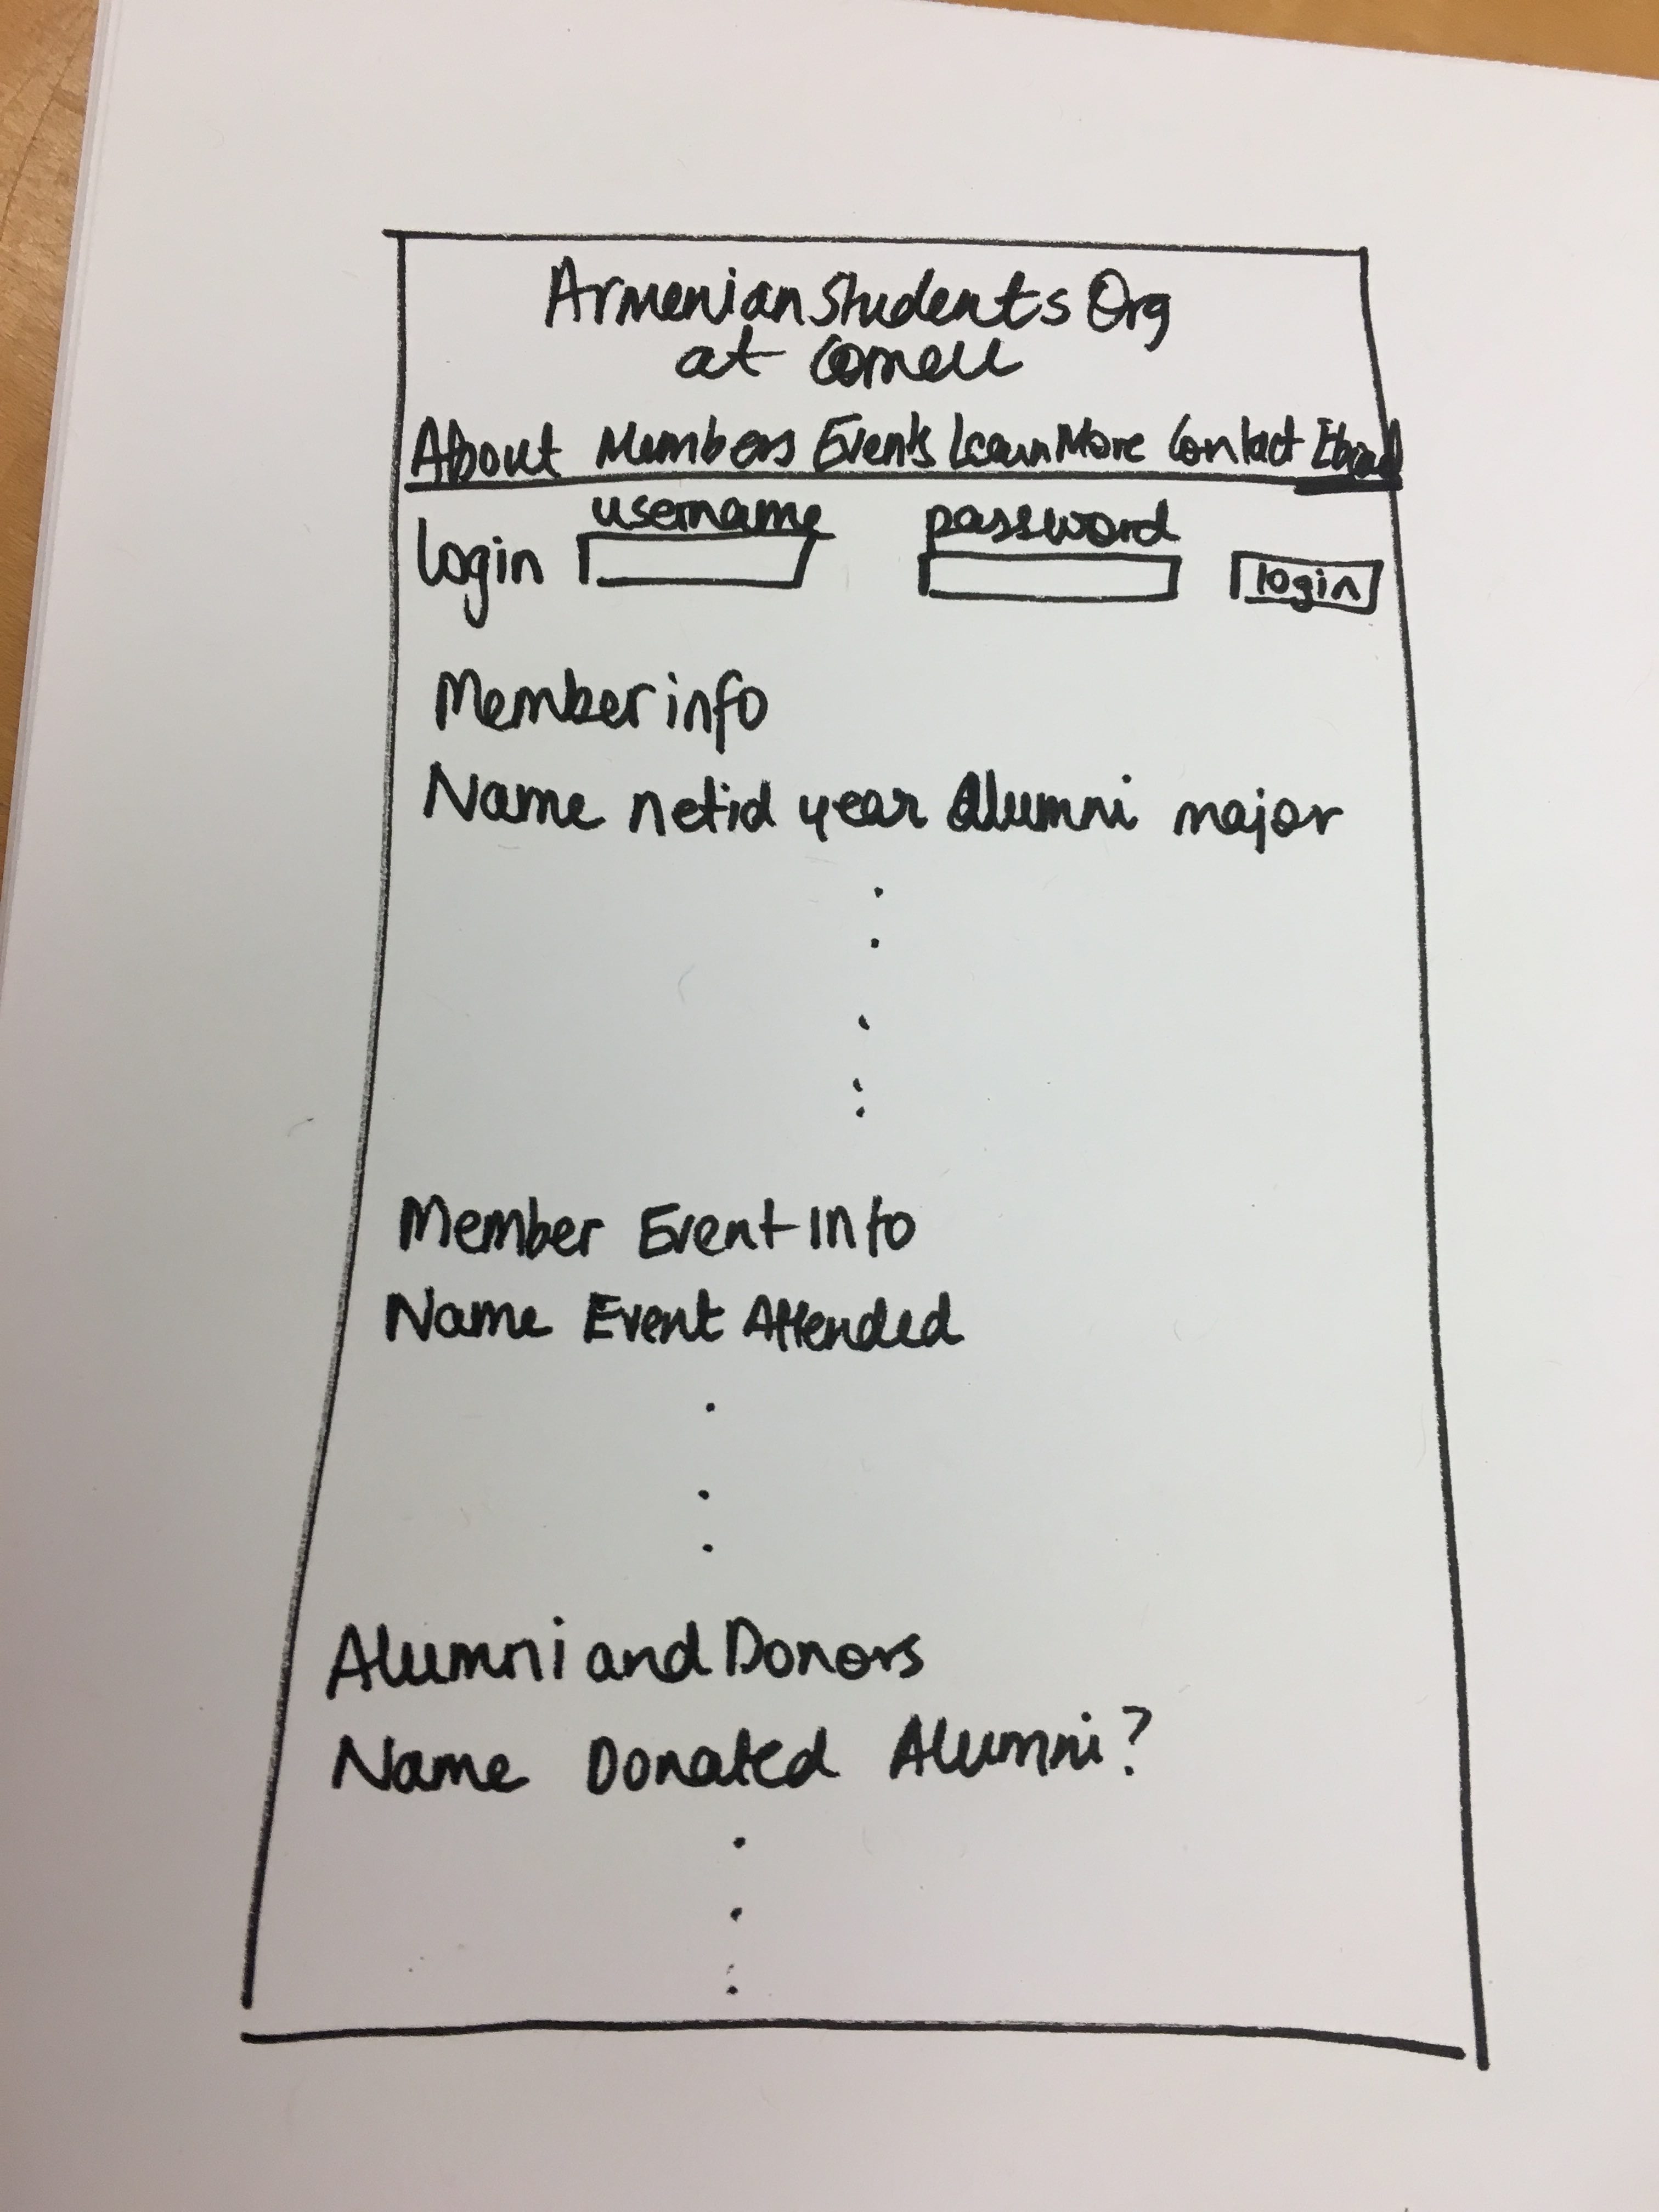 Armenian Students Org
at Cornell
About Members Events Learn More Contact Eboard
username password
login login
Member info
Name netid year Alumni major
Member Event Info
Name Event Attended
Alumni and Donors
Name Donated Alumni?